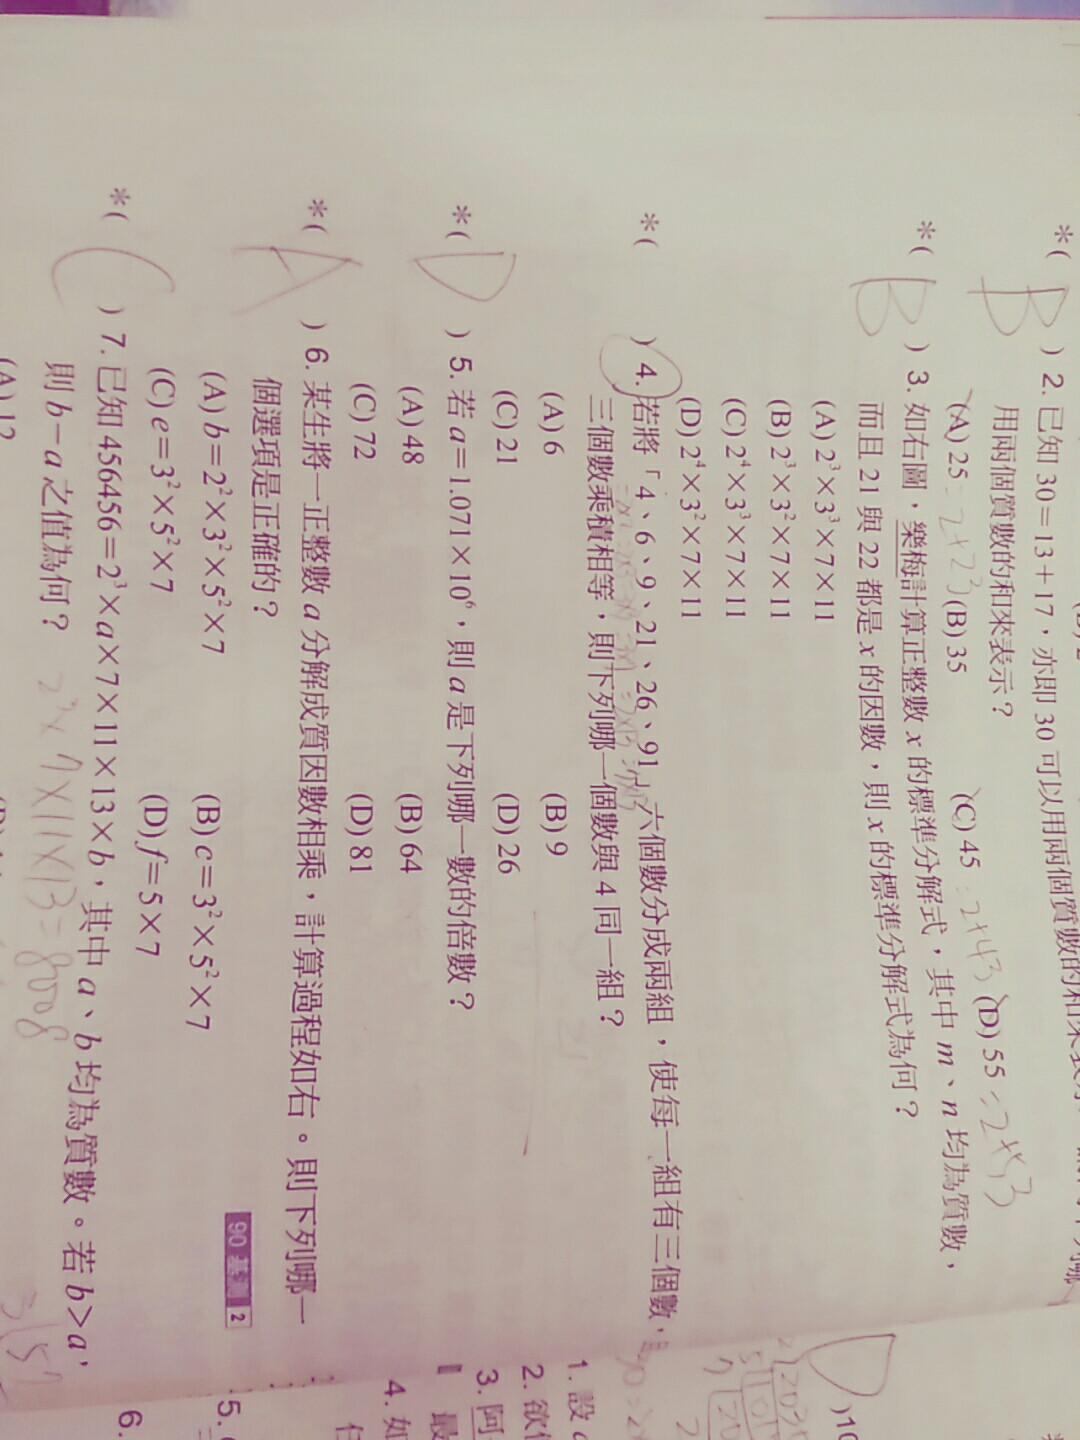 *( B ) 2. 已知 30=13+17，亦即 30 可以用兩個質數的和來表示
用兩個質數的和來表示？
(A) 25 =2+23 (B) 35 (C) 45 =2+43 (D) 55 =2+53
*( B ) 3. 如右圖，樂梅計算正整數 x 的標準分解式，其中 m、n 均為質數，
而且 21 與 22 都是 x 的因數，則 x 的標準分解式為何？
(A) 2³×3³×7×11
(B) 2³×3²×7×11
(C) 2⁴×3³×7×11
(D) 2⁴×3²×7×11
*( ) 4. 若將「4、6、9、21、26、91」六個數分成兩組，使每一組有三個數，
三個數乘積相等，則下列哪一個數與 4 同一組？
(A) 6 (B) 9
(C) 21 (D) 26
*( D ) 5. 若 a=1.071×10⁶，則 a 是下列哪一數的倍數？
(A) 48 (B) 64
(C) 72 (D) 81
*( A ) 6. 某生將一正整數 a 分解成質因數相乘，計算過程如右。則下列哪一
個選項是正確的？
90 基測 2
(A) b=2²×3²×5²×7 (B) c=3²×5²×7
(C) e=3²×5²×7 (D) f=5×7
*( C ) 7. 已知 456456=2³×a×7×11×13×b，其中 a、b 均為質數。若 b>a，
則 b-a 之值為何？
2³×7×11×13=8008
(A) 12
D )10
1. 設
2. 欲
3. 阿
最
4. 如
5.
6.